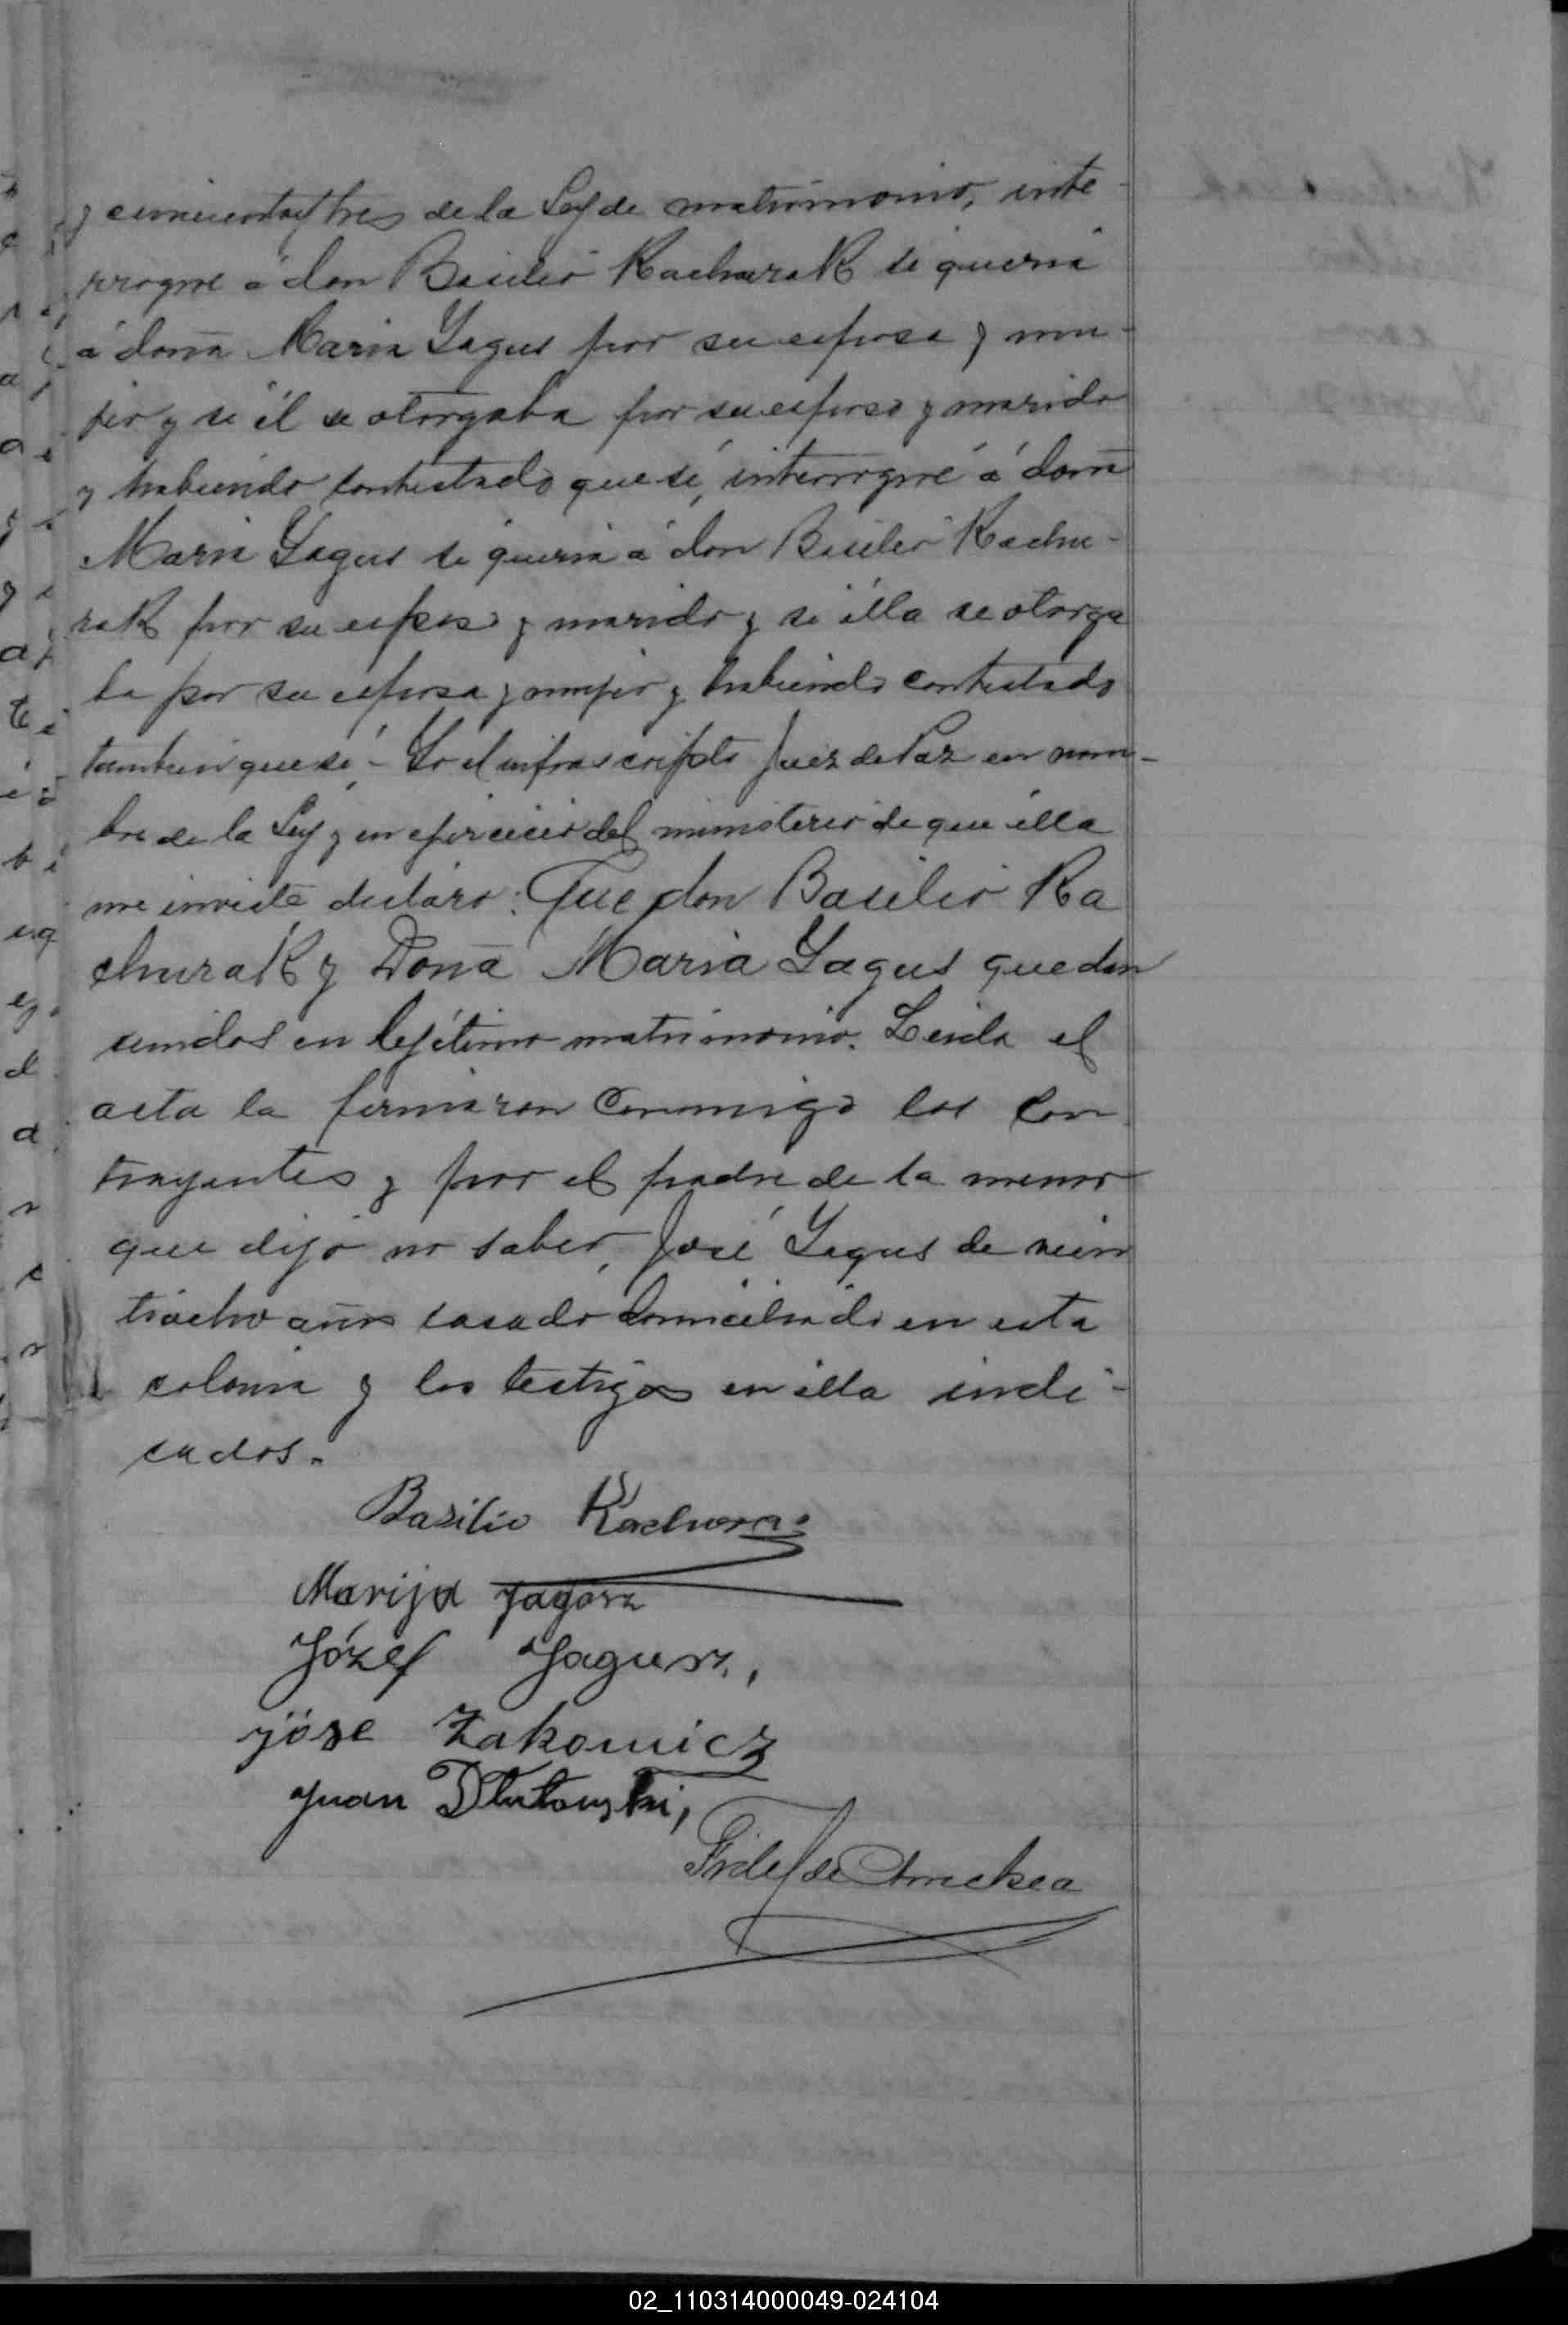 y cincuentaytres de la Ley de matrimonio, inte-
rrogué á don Basilio Kachurak si queria
á doña Maria Yagus por su esposa y mu-
jer y si él se otorgaba por su esposo y marido
y habiendo contestado que sí, interrogué á doña
Maria Yagus si queria á don Basilio Kachu-
rak por su esposo y marido y si élla se otorga
ba por su esposa y mujer y habiendo contestado
tambien que sí - Yo el infrascripto Juez de Paz en nom-
bre de la Ley y en ejercicio del ministerio de que élla
me inviste declaro: Que don Basilio Ka
churak y Doña Maria Yagus quedan
unidos en lejítimo matrimonio. Leida el
acta la firmaron conmigo los con
trayentes y por el padre de la menor
que dijo no saber, José Yagus de vein
tiocho años casado domiciliado en esta
colonia y los testigos en élla indi-
cados.
Basilio Kachura
Marija Jagorz
Józef Jagusz,
Jöse Zakowicz
Juan Dlutowski,
Fidel de
02_110314000049-024104